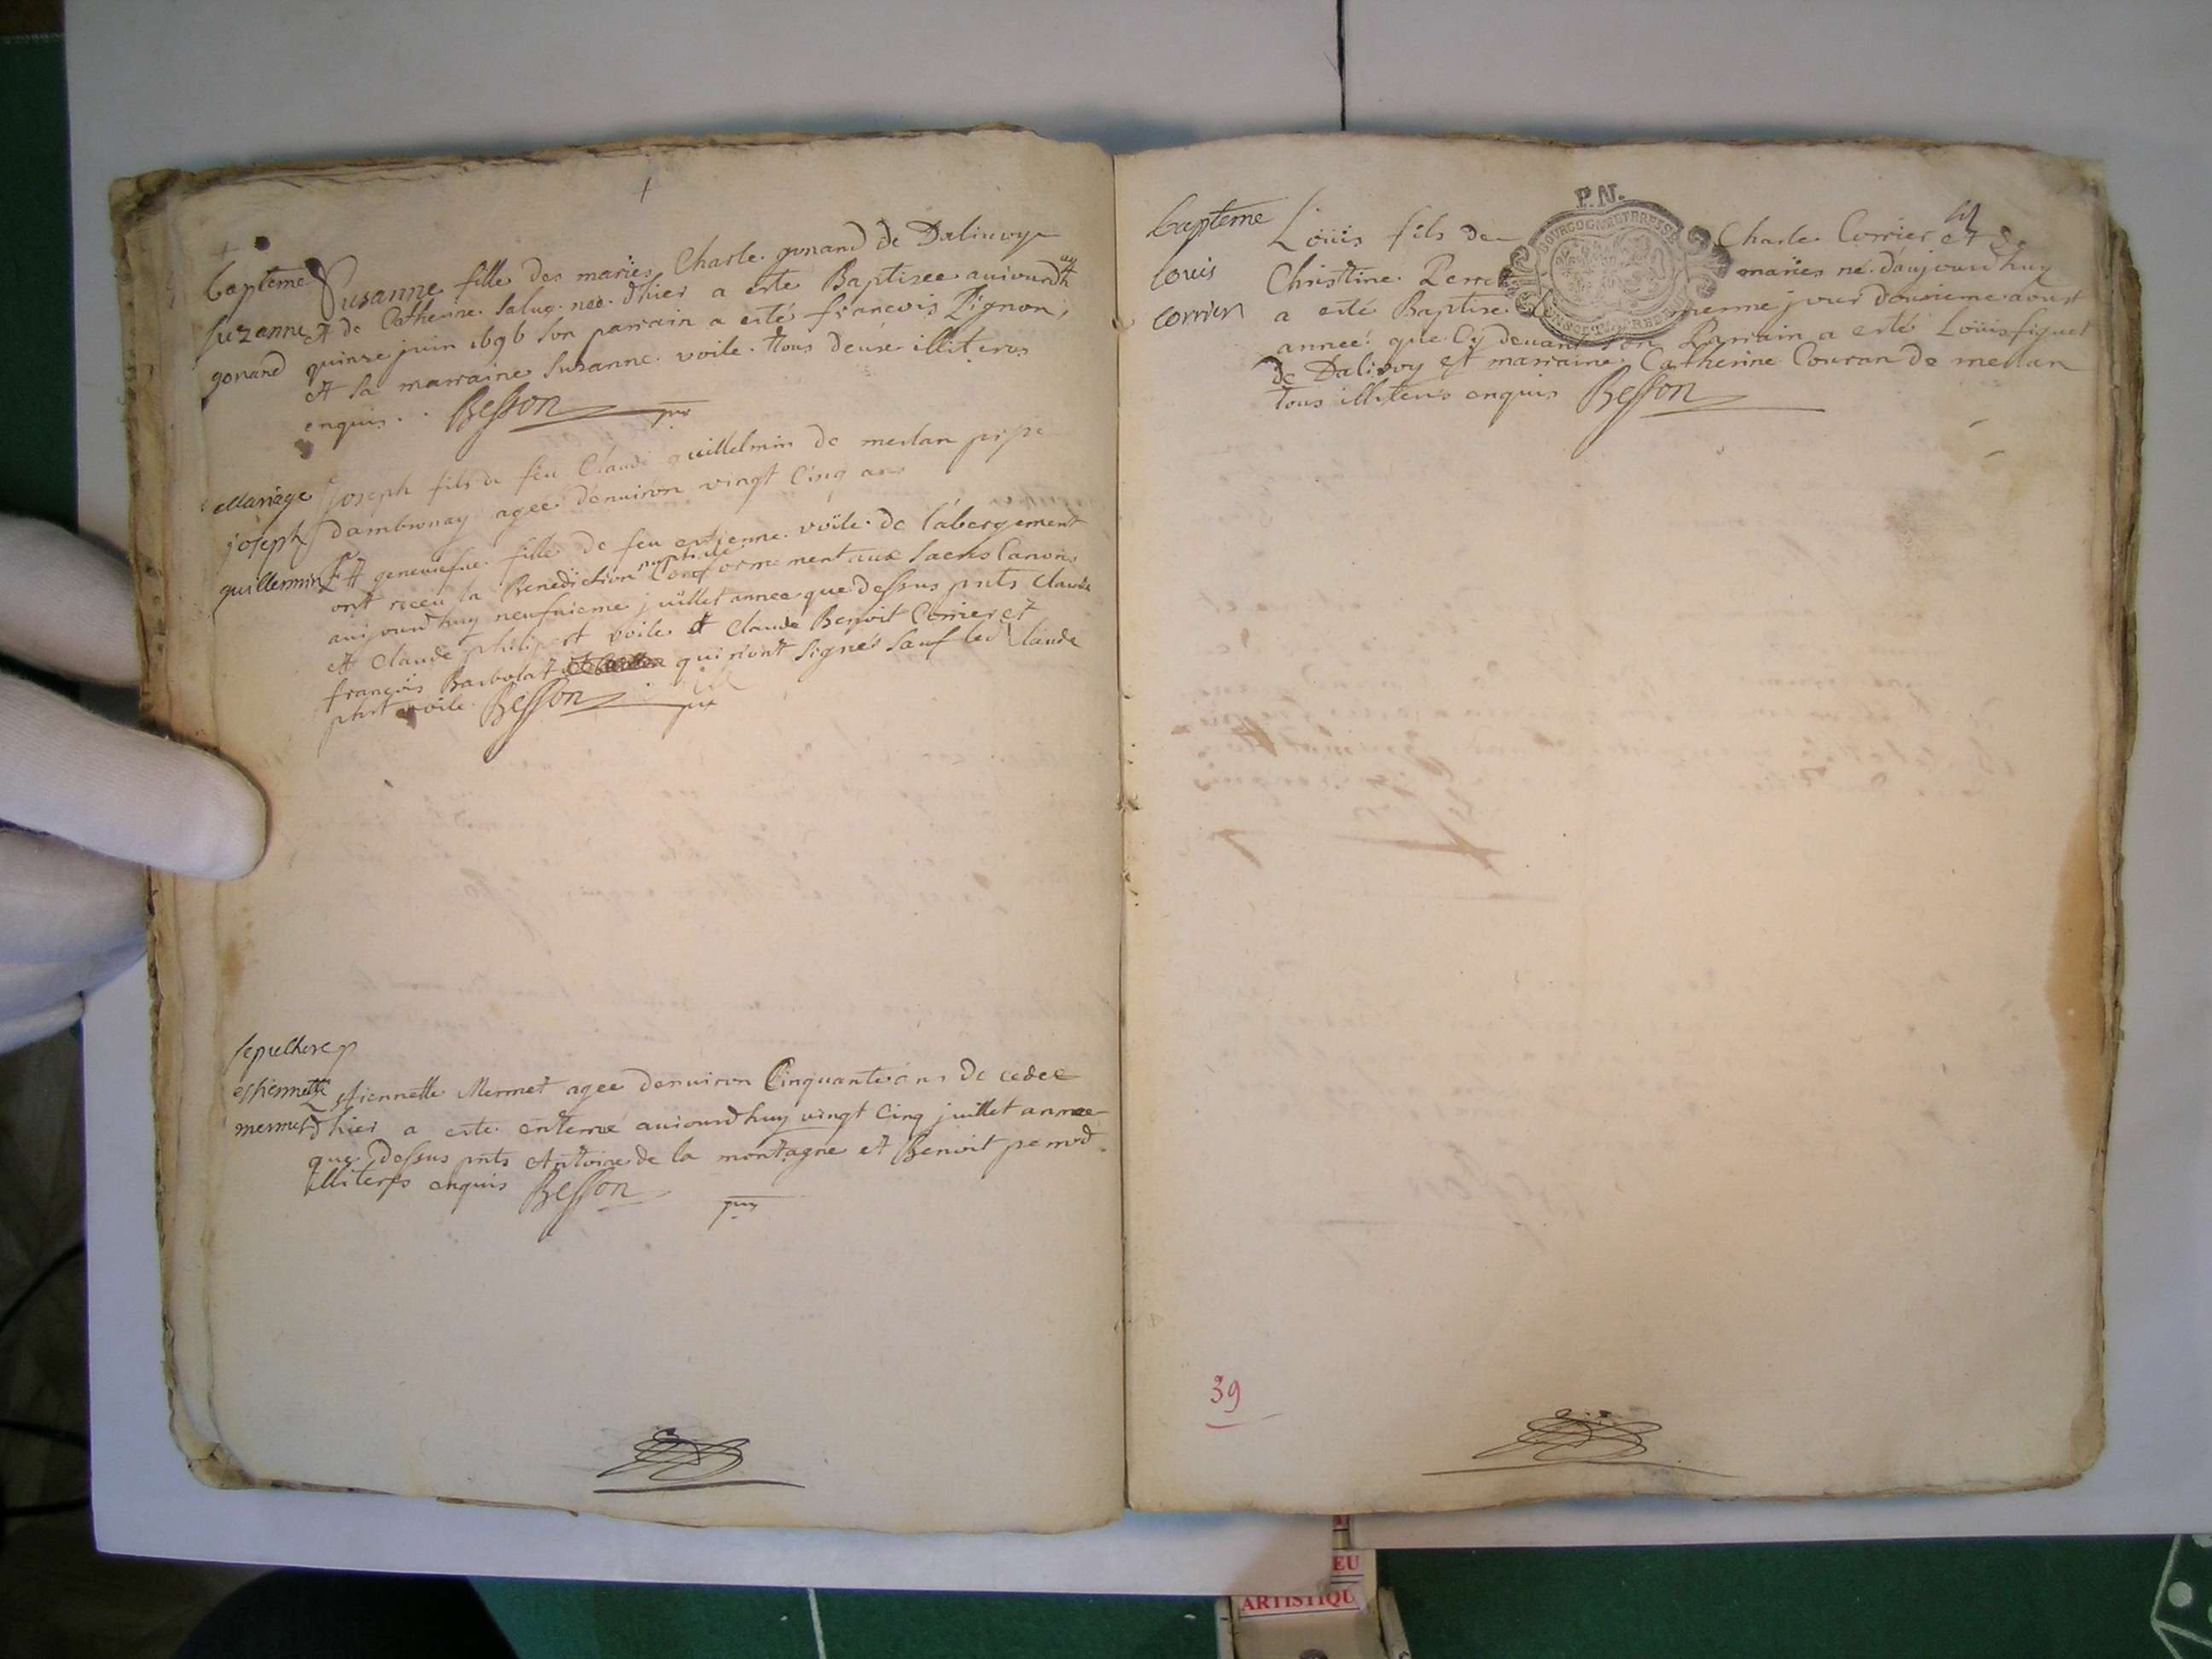 bapteme
Suzanne
gonand
Susanne fille des mariés Charle gonand de Dalivoy
Et de Catherine Salug. née d'hier a esté Baptisee auiourdhuy
quinze juin 1696 son parrain a esté francois Pignon,
Et sa marraine Susanne voile tous deux illiteres
enquis. Besson
mariage
joseph
guillermin
Joseph fils de feu Claude guillelmin de merlan
dambronay agée denuiron vingt Cinq ans
Et geneuiefue fille de feu estienne voile de labergement
ont receu la Benediction nuptiale Conformement aux Sacres Canons
aujourdhuy neufuieme juillet annee que dessus pnts Claude
et Claude philipert voile et Claude Benoit Corrier et
françois Barbolat qui n'ont signés sauf led Claude
phrt voile Besson
sepulture
estiennette
mermet
Estiennette Mermet agee denuiron Cinquante ans decedee
d'hier a esté enterré auiourdhuy vingt Cinq juillet annee
que dessus pnts Antoine de la montagne et Benoit
illiteres enquis Besson
P.N.
BOURGOGNE ET BRESSE
bapteme
louis
corrier
Loüis fils de Charle Corrier et de
Christine Perret mariés né daujourdhuy
a esté Baptisé mesme jour douzieme aoust
année que Cy deuant son Parrain a esté Loüis figuet
de Dalivoy et marraine Catherine Couran de merlan
tous illiterés enquis Besson
39
EU
ARTISTIQU